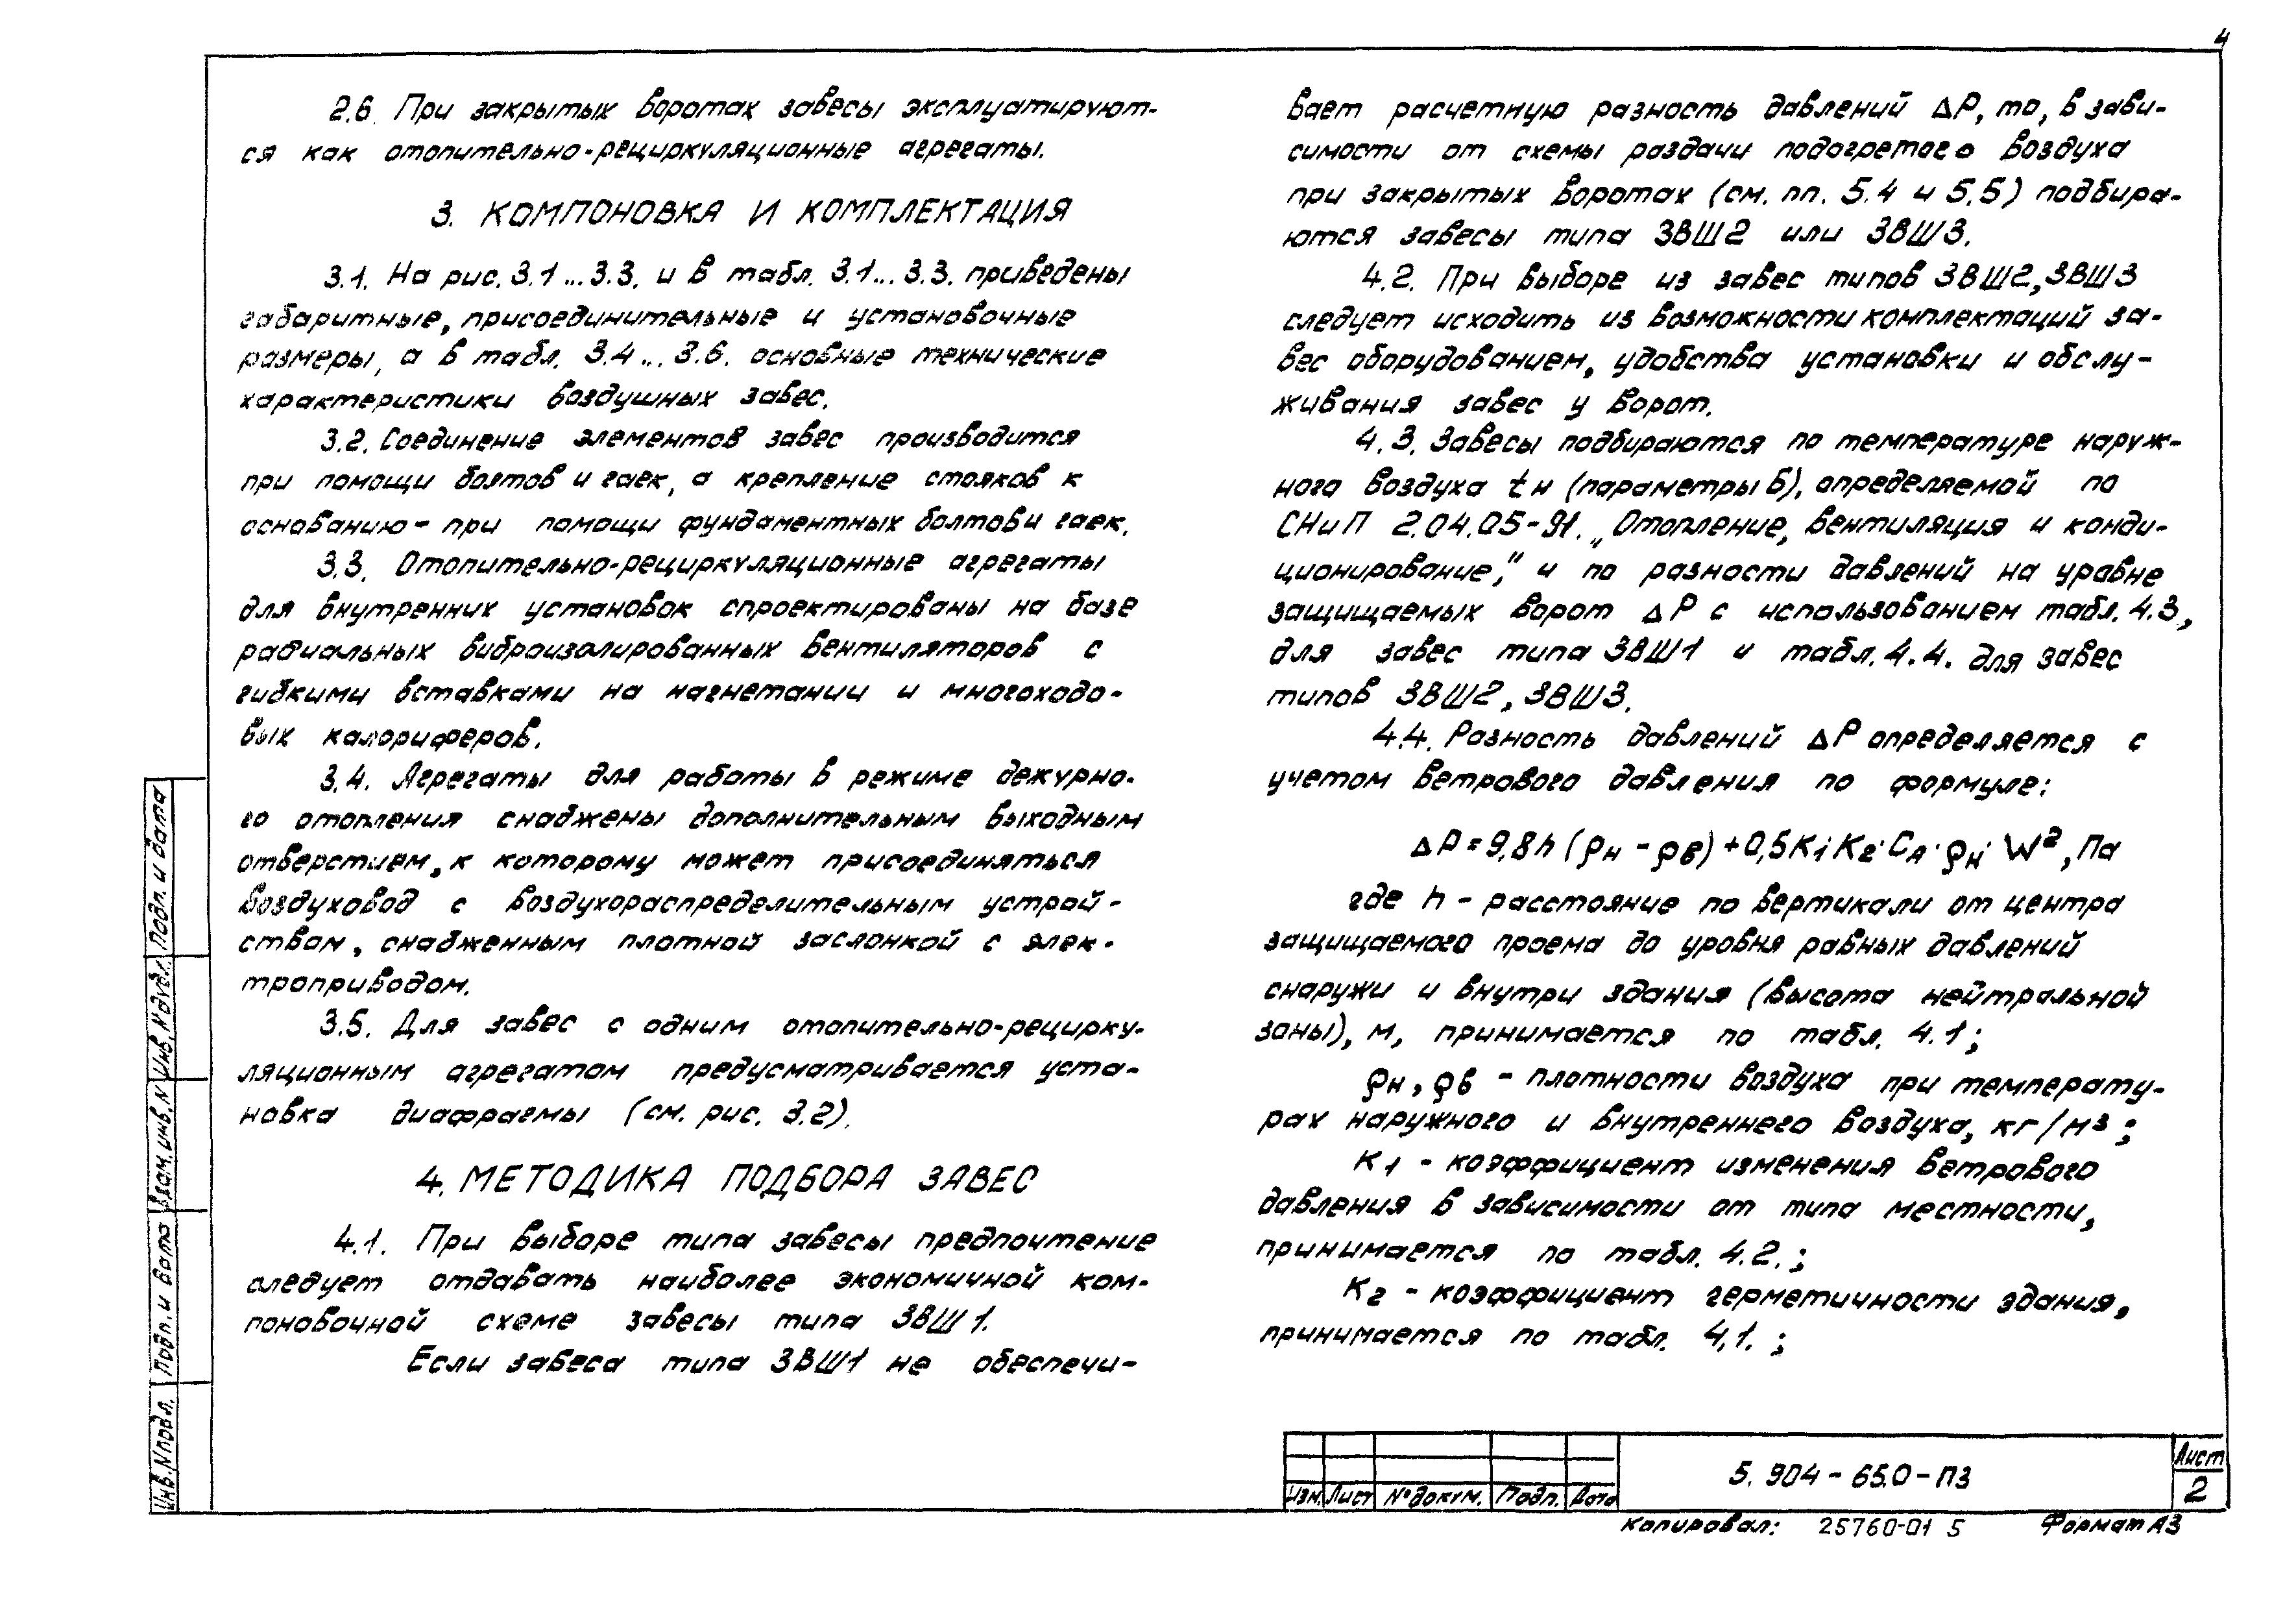 4
2.6. При закрытых воротах завесы эксплуатируют-
ся как отопительно-рециркуляционные агрегаты.
3. КОМПОНОВКА И КОМПЛЕКТАЦИЯ
3.1. На рис. 3.1 ... 3.3. и в табл. 3.1 ... 3.3. приведены
габаритные, присоединительные и установочные
размеры, а в табл. 3.4 ... 3.6. основные технические
характеристики воздушных завес.
3.2. Соединение элементов завес производится
при помощи болтов и гаек, а крепление стояков к
основанию - при помощи фундаментных болтов и гаек.
3.3. Отопительно-рециркуляционные агрегаты
для внутренних установок спроектированы на базе
радиальных виброизолированных вентиляторов с
гибкими вставками на нагнетании и многоходо-
вых калориферов.
3.4. Агрегаты для работы в режиме дежурно-
го отопления снабжены дополнительным выходным
отверстием, к которому может присоединяться
воздуховод с воздухораспределительным устрой-
ством, снабженным плотной заслонкой с элек-
троприводом.
3.5. Для завес с одним отопительно-рецирку-
ляционным агрегатом предусматривается уста-
новка диафрагмы (см. рис. 3.2).
4. МЕТОДИКА ПОДБОРА ЗАВЕС
4.1. При выборе типа завесы предпочтение
следует отдавать наиболее экономичной ком-
поновочной схеме завесы типа ЗВШ1.
Если завеса типа ЗВШ1 не обеспечи-
вает расчетную разность давлений ΔP, то, в зави-
симости от схемы раздачи подогретого воздуха
при закрытых воротах (см. пп. 5.4 и 5.5) подбира-
ются завесы типа ЗВШ2 или ЗВШ3.
4.2. При выборе из завес типов ЗВШ2, ЗВШ3
следует исходить из возможности комплектаций за-
вес оборудованием, удобства установки и обслу-
живания завес у ворот.
4.3. Завесы подбираются по температуре наруж-
ного воздуха tн (параметры Б), определяемой по
СНиП 2.04.05-91. „Отопление, вентиляция и конди-
ционирование," и по разности давлений на уровне
защищаемых ворот ΔP с использованием табл. 4.3,
для завес типа ЗВШ1 и табл. 4.4. для завес
типов ЗВШ2, ЗВШ3.
4.4. Разность давлений ΔP определяется с
учетом ветрового давления по формуле:
ΔP = 9,8h (ρн - ρв) + 0,5K1·K2·CA·ρн·W², Па
где h - расстояние по вертикали от центра
защищаемого проема до уровня равных давлений
снаружи и внутри здания (высота нейтральной
зоны), м, принимается по табл. 4.1;
ρн, ρв - плотности воздуха при температу-
рах наружного и внутреннего воздуха, кг/м³;
K1 - коэффициент изменения ветрового
давления в зависимости от типа местности,
принимается по табл. 4.2.;
K2 - коэффициент герметичности здания,
принимается по табл. 4.1.;
Подп. и дата
Инв. N дубл.
Взам. инв. N
Подп. и дата
Инв. N подл.
Изм. Лист № докум. Подп. Дата
5.904-65.0-ПЗ
Лист
2
Копировал: 25760-01 5 Формат А3